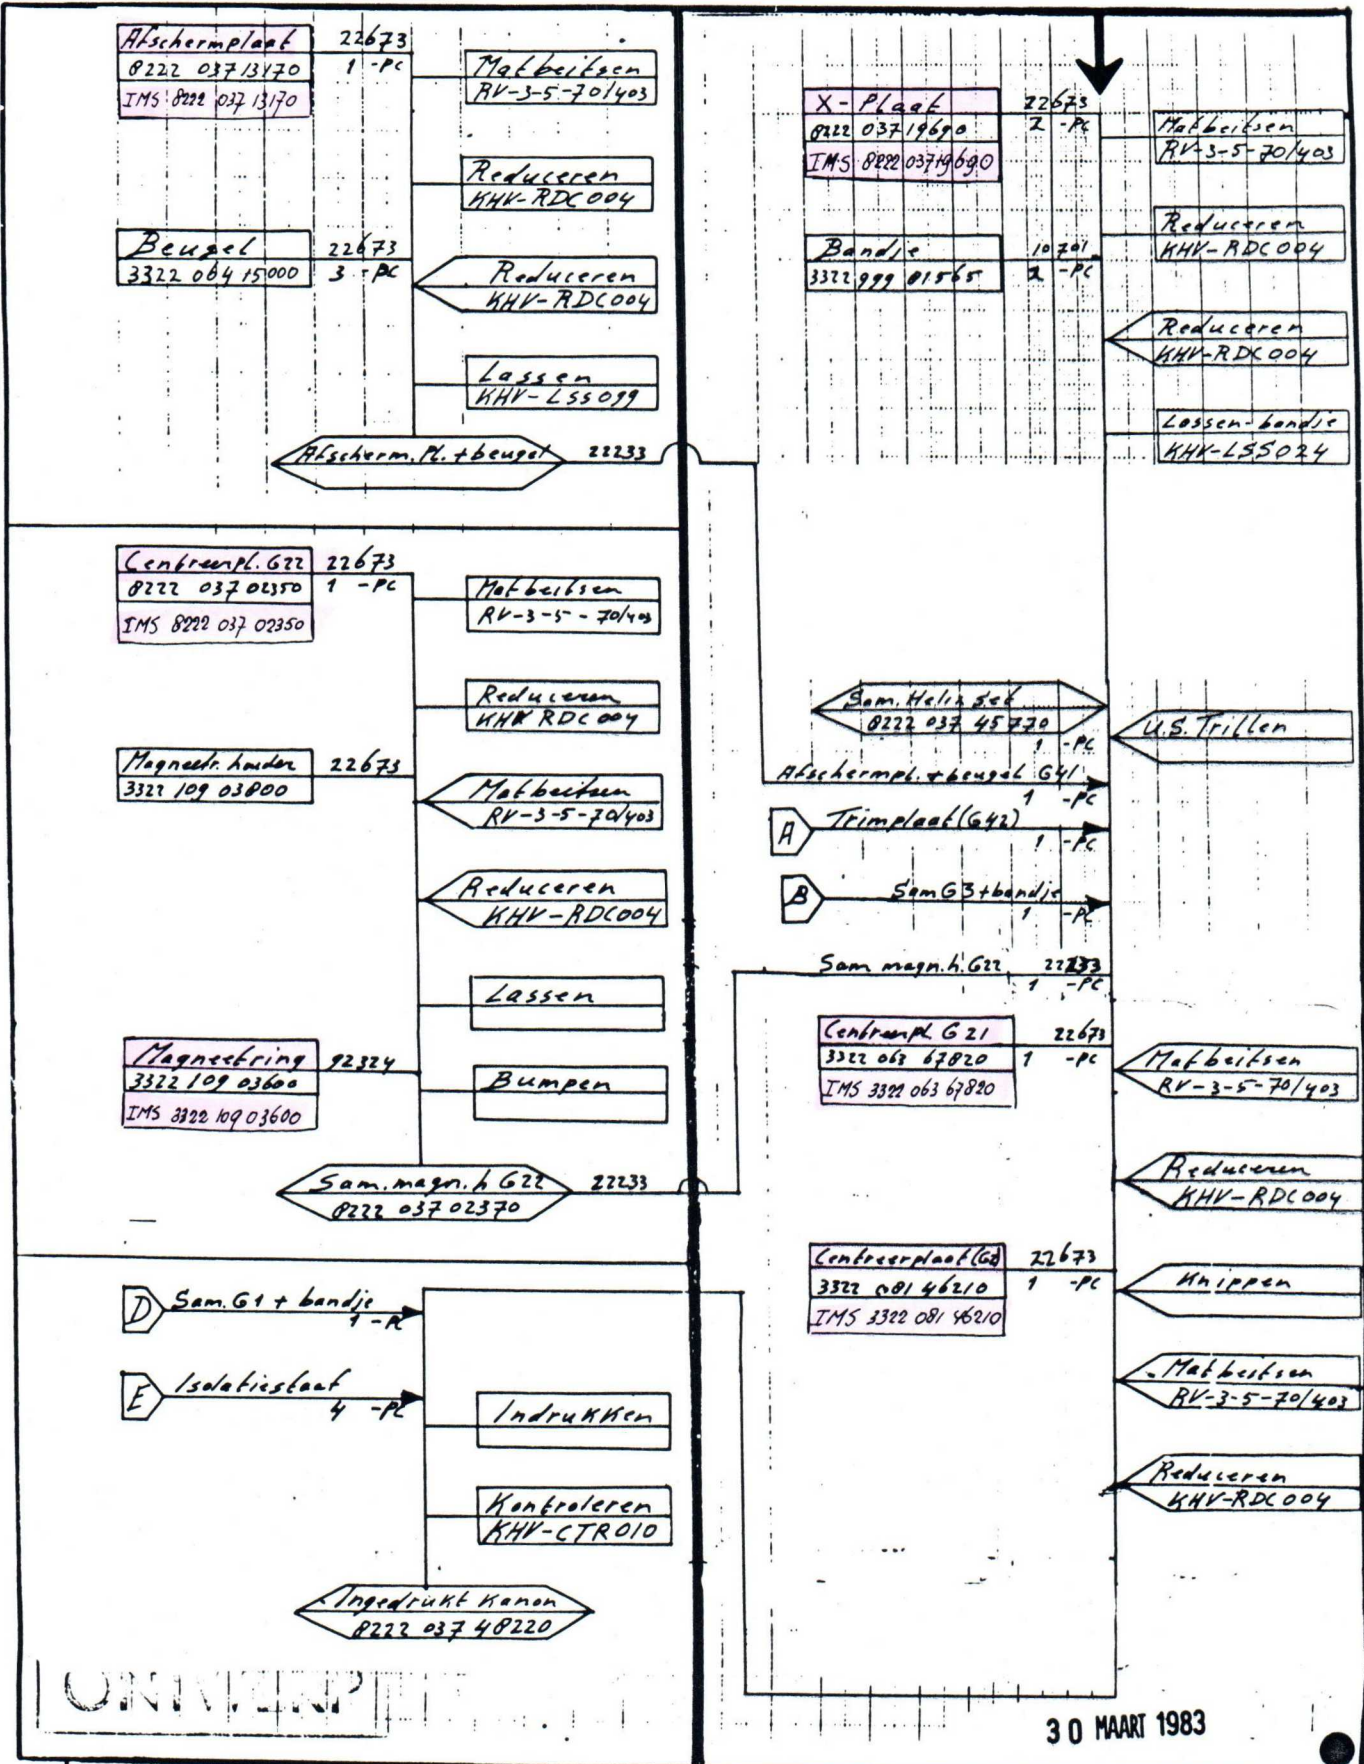 Afschermplaat 22673
8222 037 13170 1 -PC
IMS 8222 037 13170
Matbeitsen
RV-3-5-70/403
Reduceren
KHV-RDC004
Beugel 22673
3322 064 15000 3 -PC
Reduceren
KHV-RDC004
Lassen
KHV-LSS099
Afscherm.Pl.+beugel 22233
Centreerpl. G22 22673
8222 037 02350 1 -PC
IMS 8222 037 02350
Matbeitsen
RV-3-5-70/403
Reduceren
KHV RDC004
Magneetr. houder 22673
3322 109 03800
Matbeitsen
RV-3-5-70/403
Reduceren
KHV-RDC004
Lassen
Magneetring 92324
3322 109 03600
IMS 3322 109 03600
Bumpen
Sam.magn.h G22 22233
8222 037 02370
D Sam.G1 + bandje
1 -PC
E Isolatiestaaf
4 -PC
Indrukken
Kontroleren
KHV-CTR010
Ingedrukt Kanon
8222 037 48220
ONTWERP
X-Plaat 22673
8222 037 19690 2 -PC
IMS 8222 037 19690
Matbeitsen
RV-3-5-70/403
Reduceren
KHV-RDC004
Bandje 10701
3322 999 81565 2 -PC
Reduceren
KHV-RDC004
Lassen-bandje
KHV-LSS024
Sam. Helix set
8222 037 45770
1 -PC
U.S. Trillen
Afschermpl.+beugel G41
1 -PC
A Trimplaat(G42)
1 -PC
B Sam G3+bandje
1 -PC
Sam magn.h. G22 22233
1 -PC
Centreerpl. G21 22673
3322 063 67820 1 -PC
IMS 3322 063 67820
Matbeitsen
RV-3-5-70/403
Reduceren
KHV-RDC004
Centreerplaat(G2) 22673
3322 081 46210 1 -PC
IMS 3322 081 46210
Knippen
Matbeitsen
RV-3-5-70/403
Reduceren
KHV-RDC004
30 MAART 1983